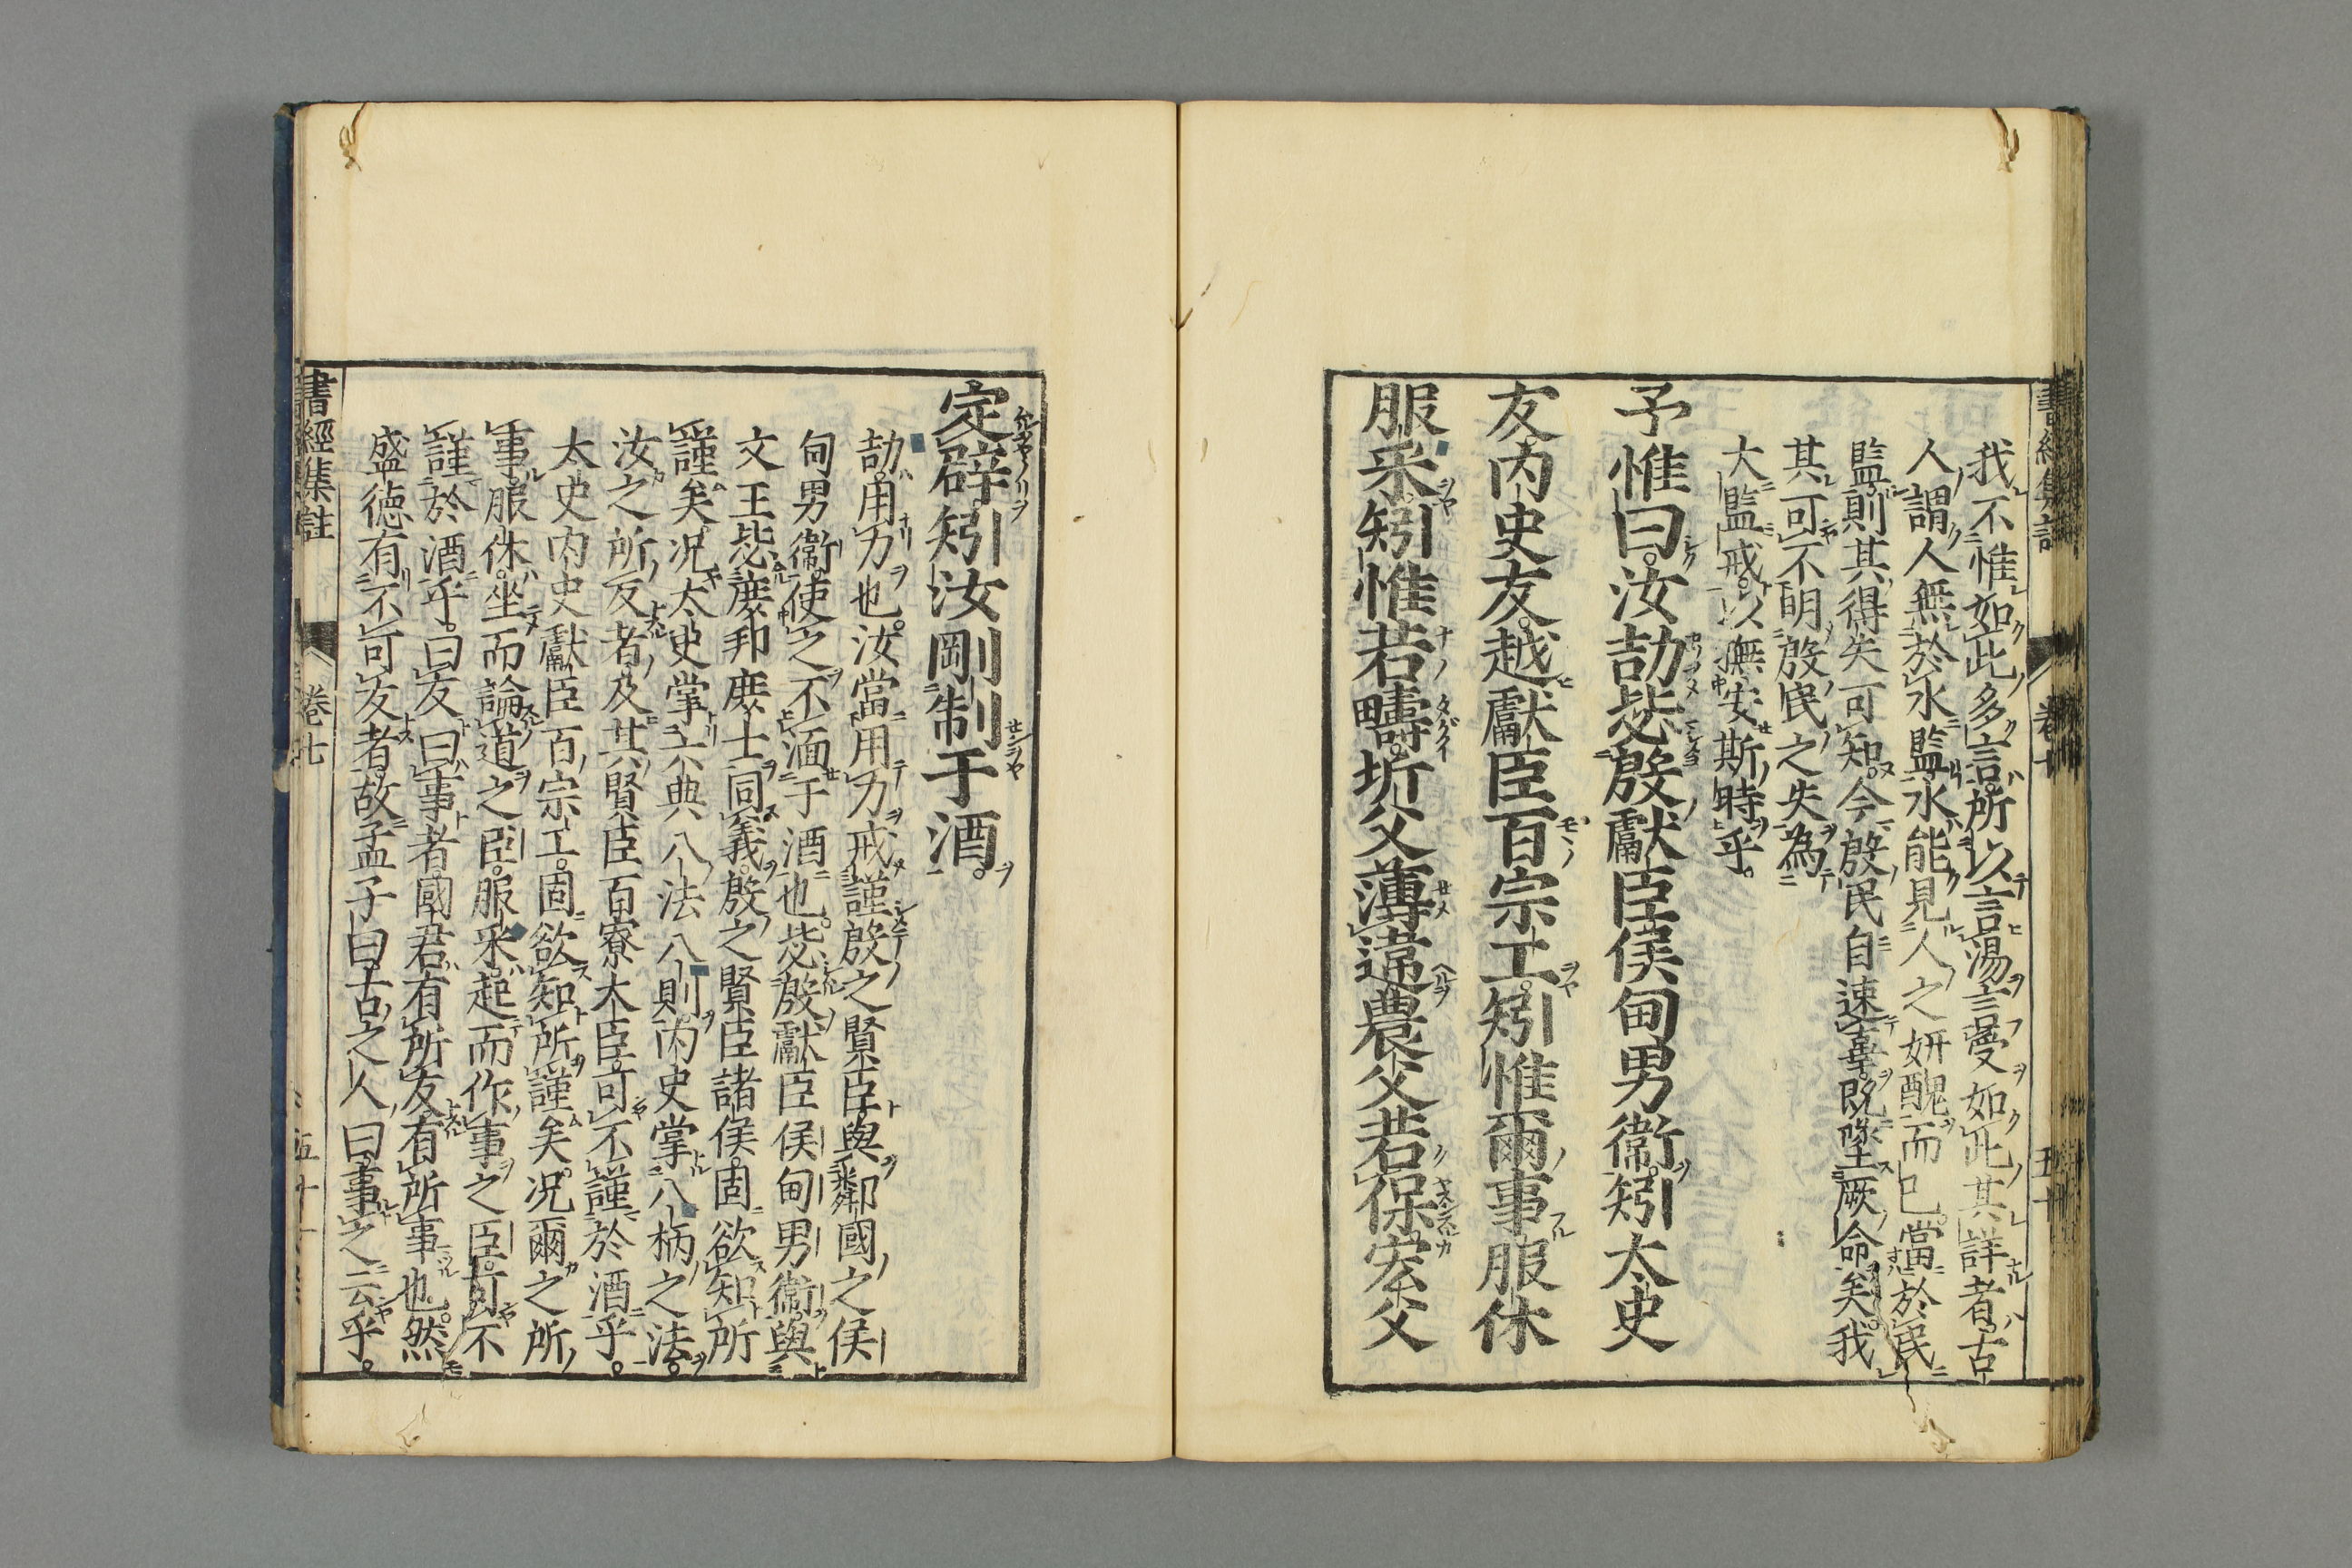 我不惟如此多言所以言湯言受如此其詳者古
人謂人無於水監水能見人之妍醜而已當於民
監則其得失可知今殷民自速辜既墜厥命矣我
其可不明殷民之失為
大監戒以撫安斯時乎。
予惟曰。汝劼毖殷獻臣侯甸男衛。矧太史
友內史友。越獻臣百宗工。矧惟爾事服休
服采。矧惟若疇。圻父薄違農父若保宏父
定辟。矧汝剛制于酒。
劼用力也。汝當用力戒謹殷之賢臣與鄰國之侯
甸男衛使之不湎于酒也。毖殷獻臣侯甸男衛與
文王毖庶邦庶士同義。殷之賢臣諸侯固欲知所
謹矣。况太史掌六典八法八則內史掌八柄之法。
汝之所友者及其賢臣百寮大臣可不謹於酒乎。
太史內史獻臣百宗工。固欲知所謹矣。况爾之所
事。服休。坐而論道之臣。服采。起而作事之臣。可不
謹於酒乎。曰友曰事者國君有所友有所事也。然
盛徳有不可友者故孟子曰古之人曰事之云乎。
書經集註
卷七
五十一